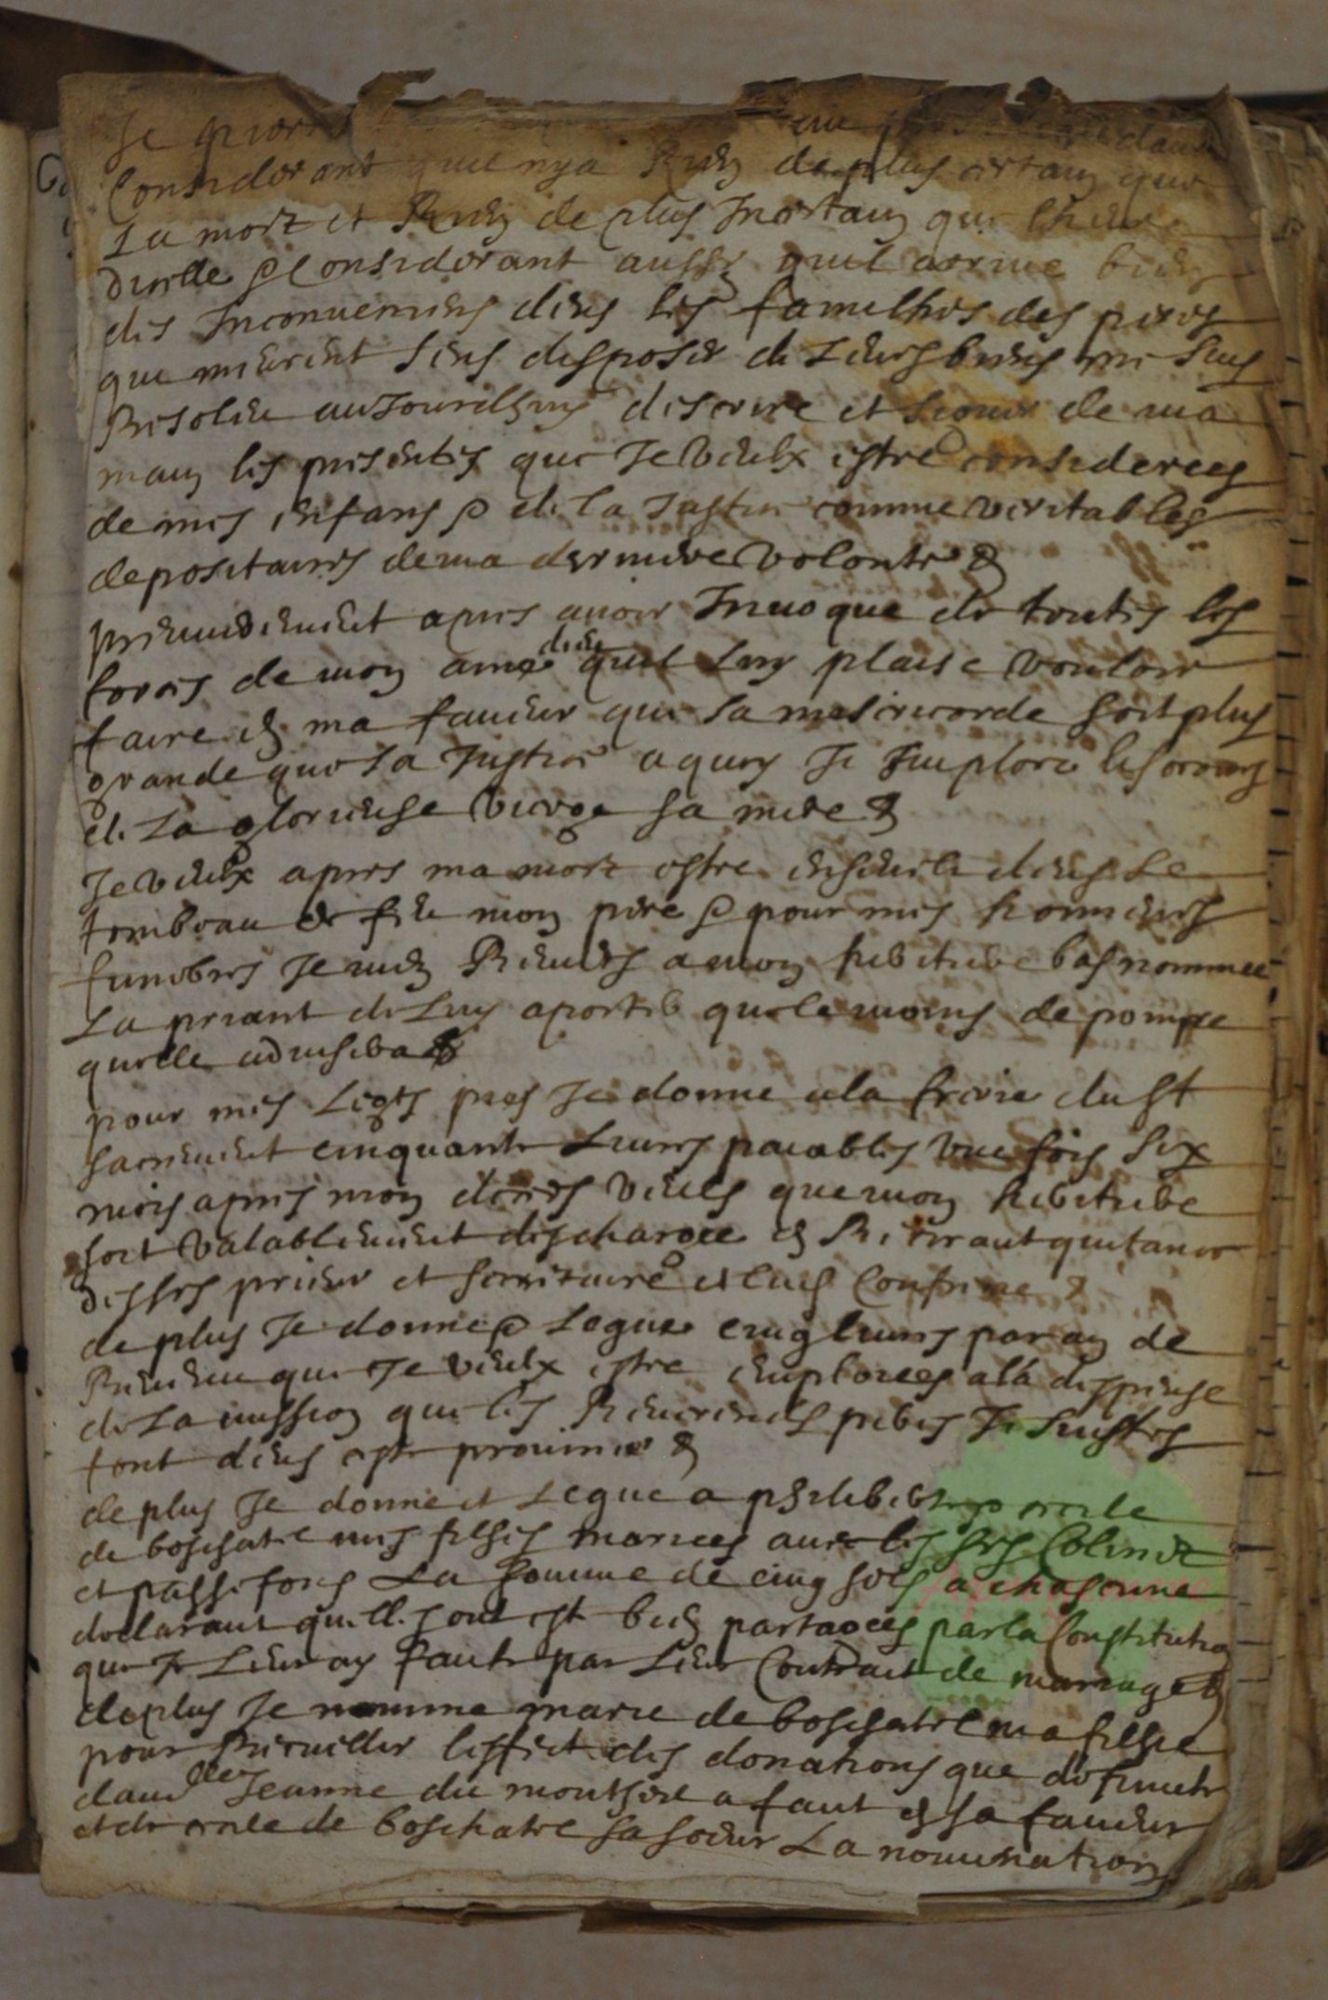 Je pierre
Considerant quil nya Rien de plus certain que
La mort et Rien de plus Incertain que lheure
dicelle & Considerant aussy quil arrive bien
des Inconveniens dens les familhes des peres
qui meurent sens disposer de Leurs biens me suis
Resoleu aujourdhuy descrire et signer de ma
main les presentes que Je veulx estre considerees
de mes enfans & de la Justice comme veritables
depositaires de ma derniere volonte &
premierement apres avoir Invoque de toutes les
forces de mon ame dieu quil Luy plaise vouloir
faire en ma faveur que sa misericorde soit plus
grande que sa Justice a quoy Je Implore le secours
de La glorieuse vierge sa mere &
Je veulx apres ma mort estre enseveli dens Le
tombeau de feu mon pere & pour mes honneurs
funebres Je men Remets a mon heritiere bas nommee
La priant de Luy aporter que le moins de pompe
quelle advisera &
pour mes Legts pies Je donne a la frerie du St
sacrement cinquante Livres paiables une fois six
mois apres mon deces veules que mon heritiere
soit valablement deschargee en Retirant quitance
desses prieur et secretaire et lad Confrerie &
de plus Je donne & Legue cinq livres par an de
Revenu que Je veulx estre emploiees a la despense
de La mission que les Reverends peres Jesuistes
font dens cete province &
de plus Je donne et Legue a et
de boschatel mes filhes mariees avec les srs Colinet
et passefons La somme de cinq sols a chascune
declarant quelles ont este bien partagees par la Constitution
que Je Leur ay faite par Leur Contrait de mariage &
de plus Je nomme marie de boschatel ma filhe
pour Recueillir leffect des donations que defuncte
dam lle Jeanne du montheil a fait en sa faveur
et de de boschatel sa soeur La nomination